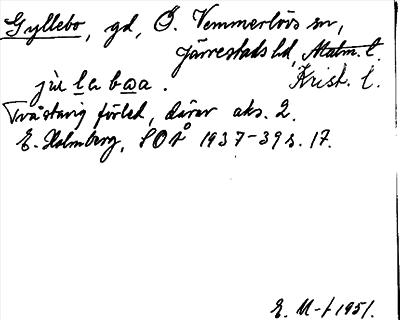 Gyllebo, gd, Ö. Vemmerlövs sn,
Järrestads hd, Malm. l.
Krist. l.
jù la bωa.
Tvåstavig förled, därav aks. 2.
E. Holmberg, SOÅ 1937-39 s. 17.
E. M-f 1951.